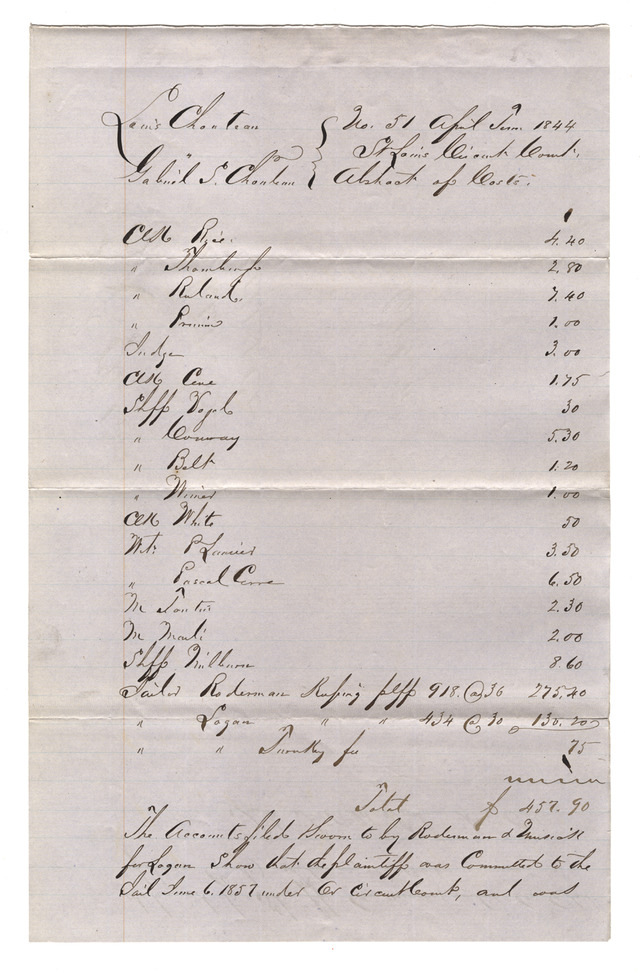 Louis Chouteau
No. 51 April Term 1844
"
St Louis Circuit Court.
Gabriel S. Chouteau
Abstract of Costs.
Clk Rice. 4.40
" Thornburgh 2.80
" Ruland. 7.40
" 1.00
Judge 3.00
Clk Cave 1.75
Shff Vogel 30
" Conway 5.30
" Belt 1.20
" Wimer 1.00
Clk White 50
Wit: P Lanier 3.50
" Pascal Cerre 6.50
M 2.30
M 2.00
Shff Milburn 8.60
Jailor Roderman Keeping plff 918.@30 275.40
" Logan " " 434 @ 30 130.20
" " Turnkey fee 75
Total $ 457.90
The Accounts filed Sworn to by Roderman &
for Logan Show that the plaintiff was Committed to the
Jail June 6. 1857 under Or Circuit Court, and was